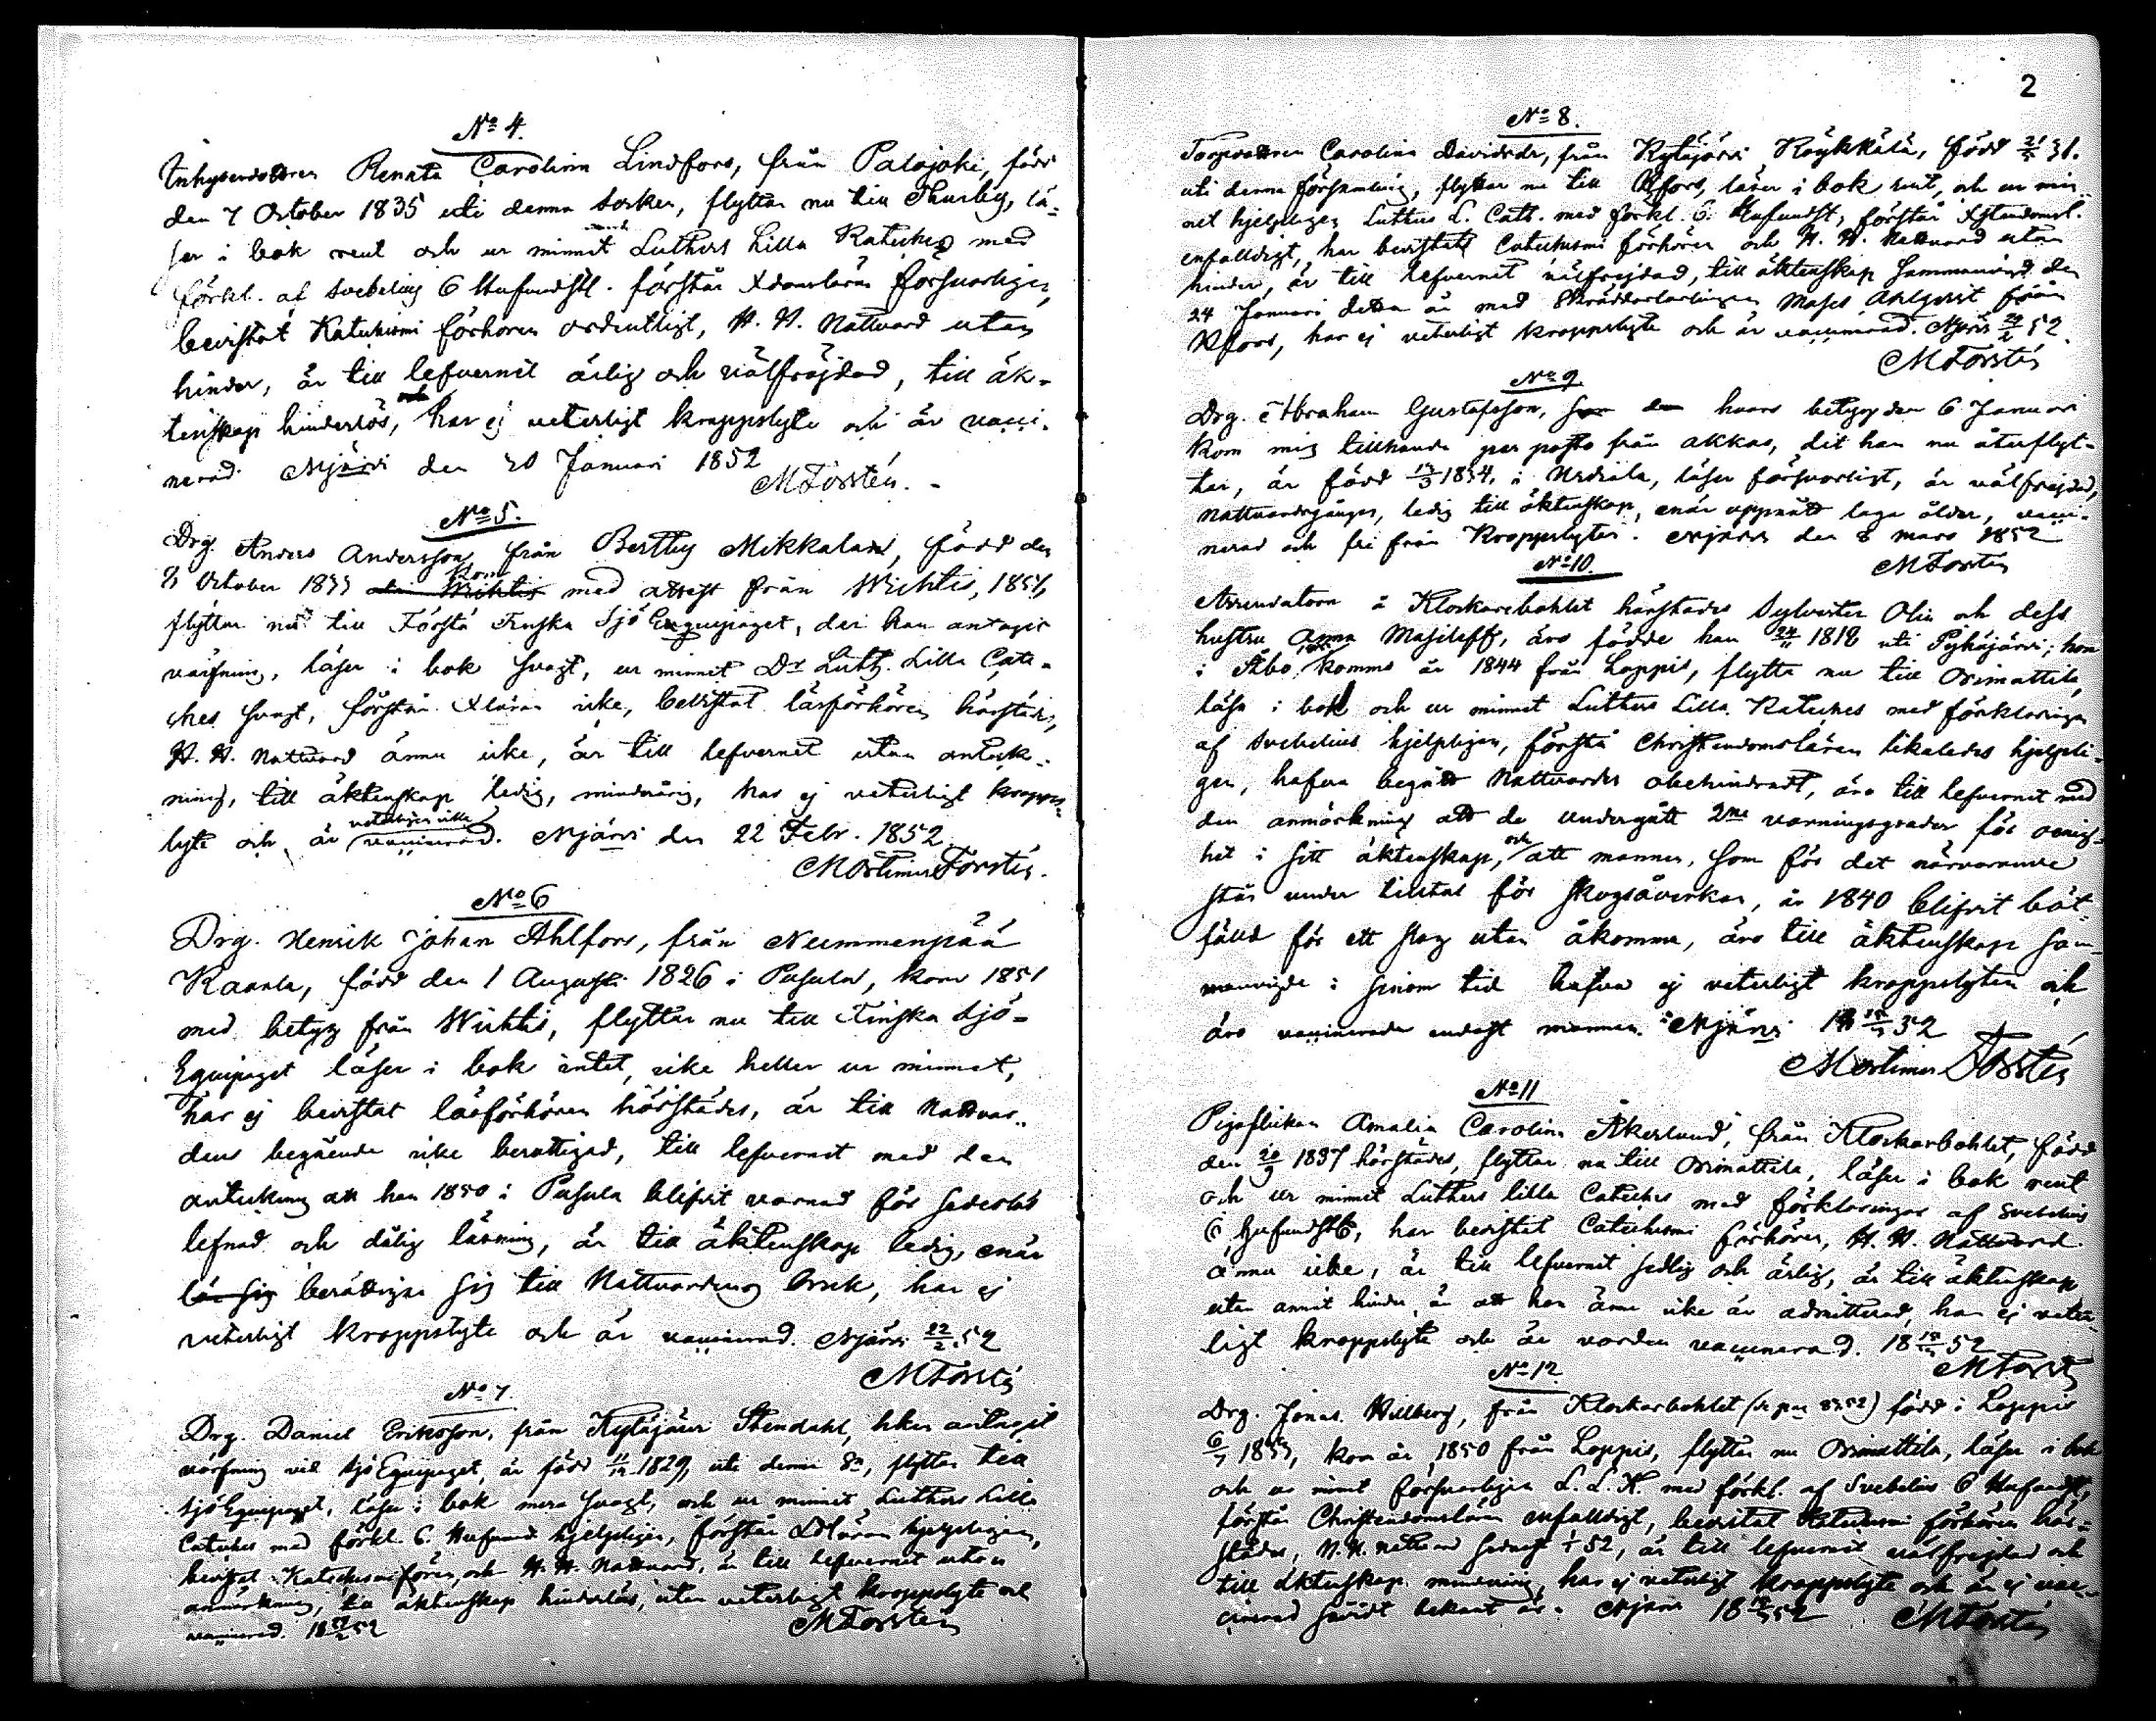 No 4.
Inhysesdottren Renata Carolina Lindfors, från Palojoki, född
den 7 October 1835 uti denna socken, flyttar nu till Thusby, lä-
ser i bok rent och ur minnet Luthers Lilla Kateches med
förkl. af Svebelius 6 Hufvudst. förstår Xdomsläran försvarligen,
bevistat Katechismi förhören ordentligt, H. H. Nattvard utan
hinder, är till lefvernet ärlig och välfräjdad, till äk-
tenskap hinderlös, har ej veterligt kroppslyte och är vacci-
nerad. Njärvi den 20 Januari 1852
MForstén.
No 5.
Drg. Anders Andersson, från Bertby Mikkala, född den
October 1833 kom med attest från Wichtis, 1851,
flyttar nu till Första Finska Sjö Equipaget, der han antagit
värfning, läser i bok svagt, ur minnet Dr Luth. Lilla Cate-
ches svagt, förstår Xläran icke, bevistat läsförhören härstädes,
H. H. Nattvard ännu icke, är till lefvernet utan anteck-
ning, till äktenskap ledig, minderårig, har ej veterligt kropps-
lyte och är veterligen icke vaccinerad. Njärvi den 22 Febr. 1852.
Mortimer Forstén.
No 6
Drg. Henrik Johan Ahlfors, från Nummenpää
Kaanla, född den 1 Augusti 1826 i Pusula, kom 1851
med betyg från Wichtis, flyttar nu till Finska Sjö-
Equipaget läser i bok intet, icke heller ur minnet,
har ej bevistat läsförhören härstädes, är till Nattvar-
dens begående icke berättigad, till lefvernet med den
anteckning att han 1850 i Pusula blifvit varnad för sedeslös
lefnad och dålig läsning, är till äktenskap ledig, enär
lär sig berättiga sig till Nattvardens bruk, har ej
veterligt kroppslyte och är vaccinerad. Njärvi 22/2 52
MForstén
No 7.
Drg. Daniel Eriksson, från Kytäjärvi Stendahl, hken antagit
värfning vid Sjö Equipaget, är född 11/12 1829, uti denna Sn, flyttar till
Sjö Equipaget, läser i bok mera svagt, och ur minnet Luthers Lilla
Cateches med förkl. 6. Hufvud hjelpligen, förstår Xläran hjelpligen,
bevistat Katechismi fören, och H. H. Nattvard, är till lefvernet utan
anmärkning, till äktenskap hinderlös, utan veterligt kroppslyte och
vaccinerad. 52
MForstén
2
No 8.
Torpdottren Carolina Davidsdr, från Kytäjärvi Röykkälä, född 31.
uti denna församling, flyttar nu till Hfors, läser i bok rent, och ur min-
net hjelpligen Luthers L. Cath. med förkl. 6. Hufvudst, förstår Xstendomsl.
enfalldigt, har bevistat Catechismi förhören och H. H. Nattvard utan
hinder, är till lefvernet välfrejdad, till äktenskap sammanvigd den
24 Januari detta år med Skräddarlärlingen Moses Ahlqvist från
Hfors, har ej veterligt kroppslyte och är vaccinerad. Njärvi 52.
MForstén
No 9
Drg. Abraham Gustafsson, hvars betyg den 6 Januari
kom mig tillhanda per posto från Akkas, dit han nu återflyt-
tar, är född 1834. i Urdiala, läser försvarligt, är välfrejdad,
Nattvardsgånger, ledig till äktenskap, enär uppnått laga ålder, vacci-
nerad och fri från Kroppslyten. Njärvi den 8 mars 1852
MForstén
No 10.
Arrendatorn å Klockarebohlet härstädes Sylvester Olin och dess
hustru Anna Masileff, äro födde han 24/11 1818 uti Pyhäjärvi; hon
i Åbo, komne år 1844 från Loppis, flytta nu till Orimattila,
läsa i bok och ur minnet Luthers Lilla Kateches med förklaringen
af Svebelius hjelpligen, förstå Christendomsläran likaledes hjelpli-
gen, hafva begått Nattvarden obehindradt, äro till lefvernet med
den anmärkning att de undergått 2ne varningsgrader för oenig-
het i sitt äktenskap, och att mannen, som för det närvarande
står under tilltal för skogsåverkan, år 1840 blifvit böt-
fälld för ett slag utan åkomma, äro till äktenskap sam-
manvigde i sinom tid hafva ej veterligt kroppslyten och
äro vaccinerade endast mannen. Njärvi 52
Mortimer Forstén
No 11
Pigoflickan Amalia Carolina Åkerlund, från Klockarbohlet, född
den 1837 härstädes, flyttar nu till Orimattila, läser i bok rent
och ur minnet Luthers lilla Cateches med förklaringar af Svebelius
6 Hufvudst, har bevistat Catechismi förhören, H. H. Nattvard
ännu icke, är till lefvernet sedlig och ärlig, är till äktenskap
utan annat hinder, än att hon ännu icke är admitterad, har ej veter-
ligt kroppslyte och är vorden vaccinerad. 18 52
MForstén
No 12.
Drg. Jonas Willberg, från Klockarbohlet född i Loppis
kom år 1850 från Loppis, flyttar nu Orimattila, läser i bok
och ur minnet försvarligen L. L. K. med förkl. af Svebelius 6 Hufvudst,
förstår Christendomsläran enfalldigt, bevistat Katechismi förhören här-
städes, H. H. Nattvard sednast 52, är till lefvernet välfrejdad och
till äktenskap minderårig, har ej veterligt kroppslyte och är ej vac-
cinerad såvidt bekant är. Njärvi 18 52
MForstén